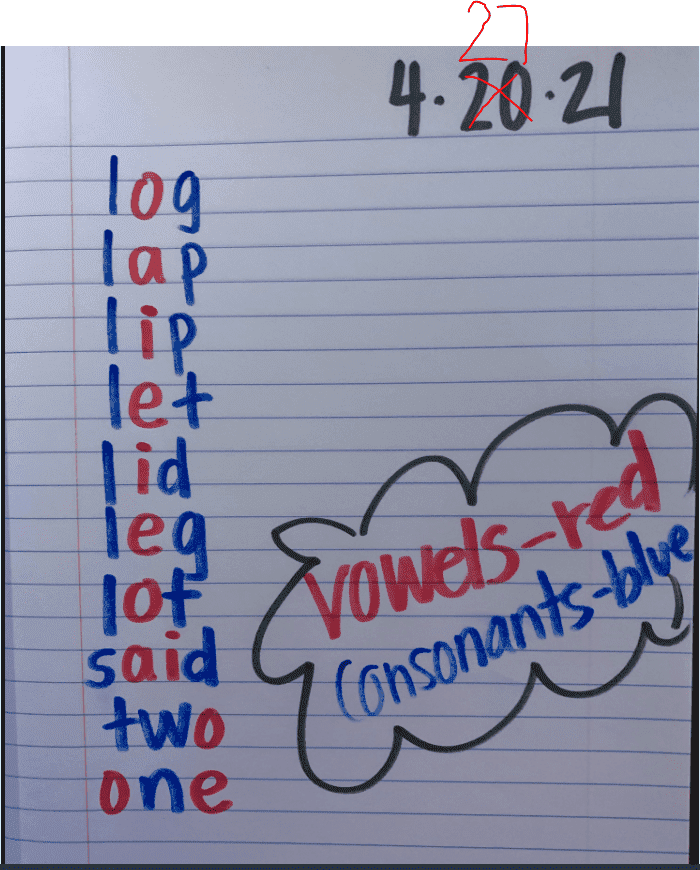 27
4.20.21
log
lap
lip
let
lid
leg
lot
said
two
one
vowels-red
consonants-blue